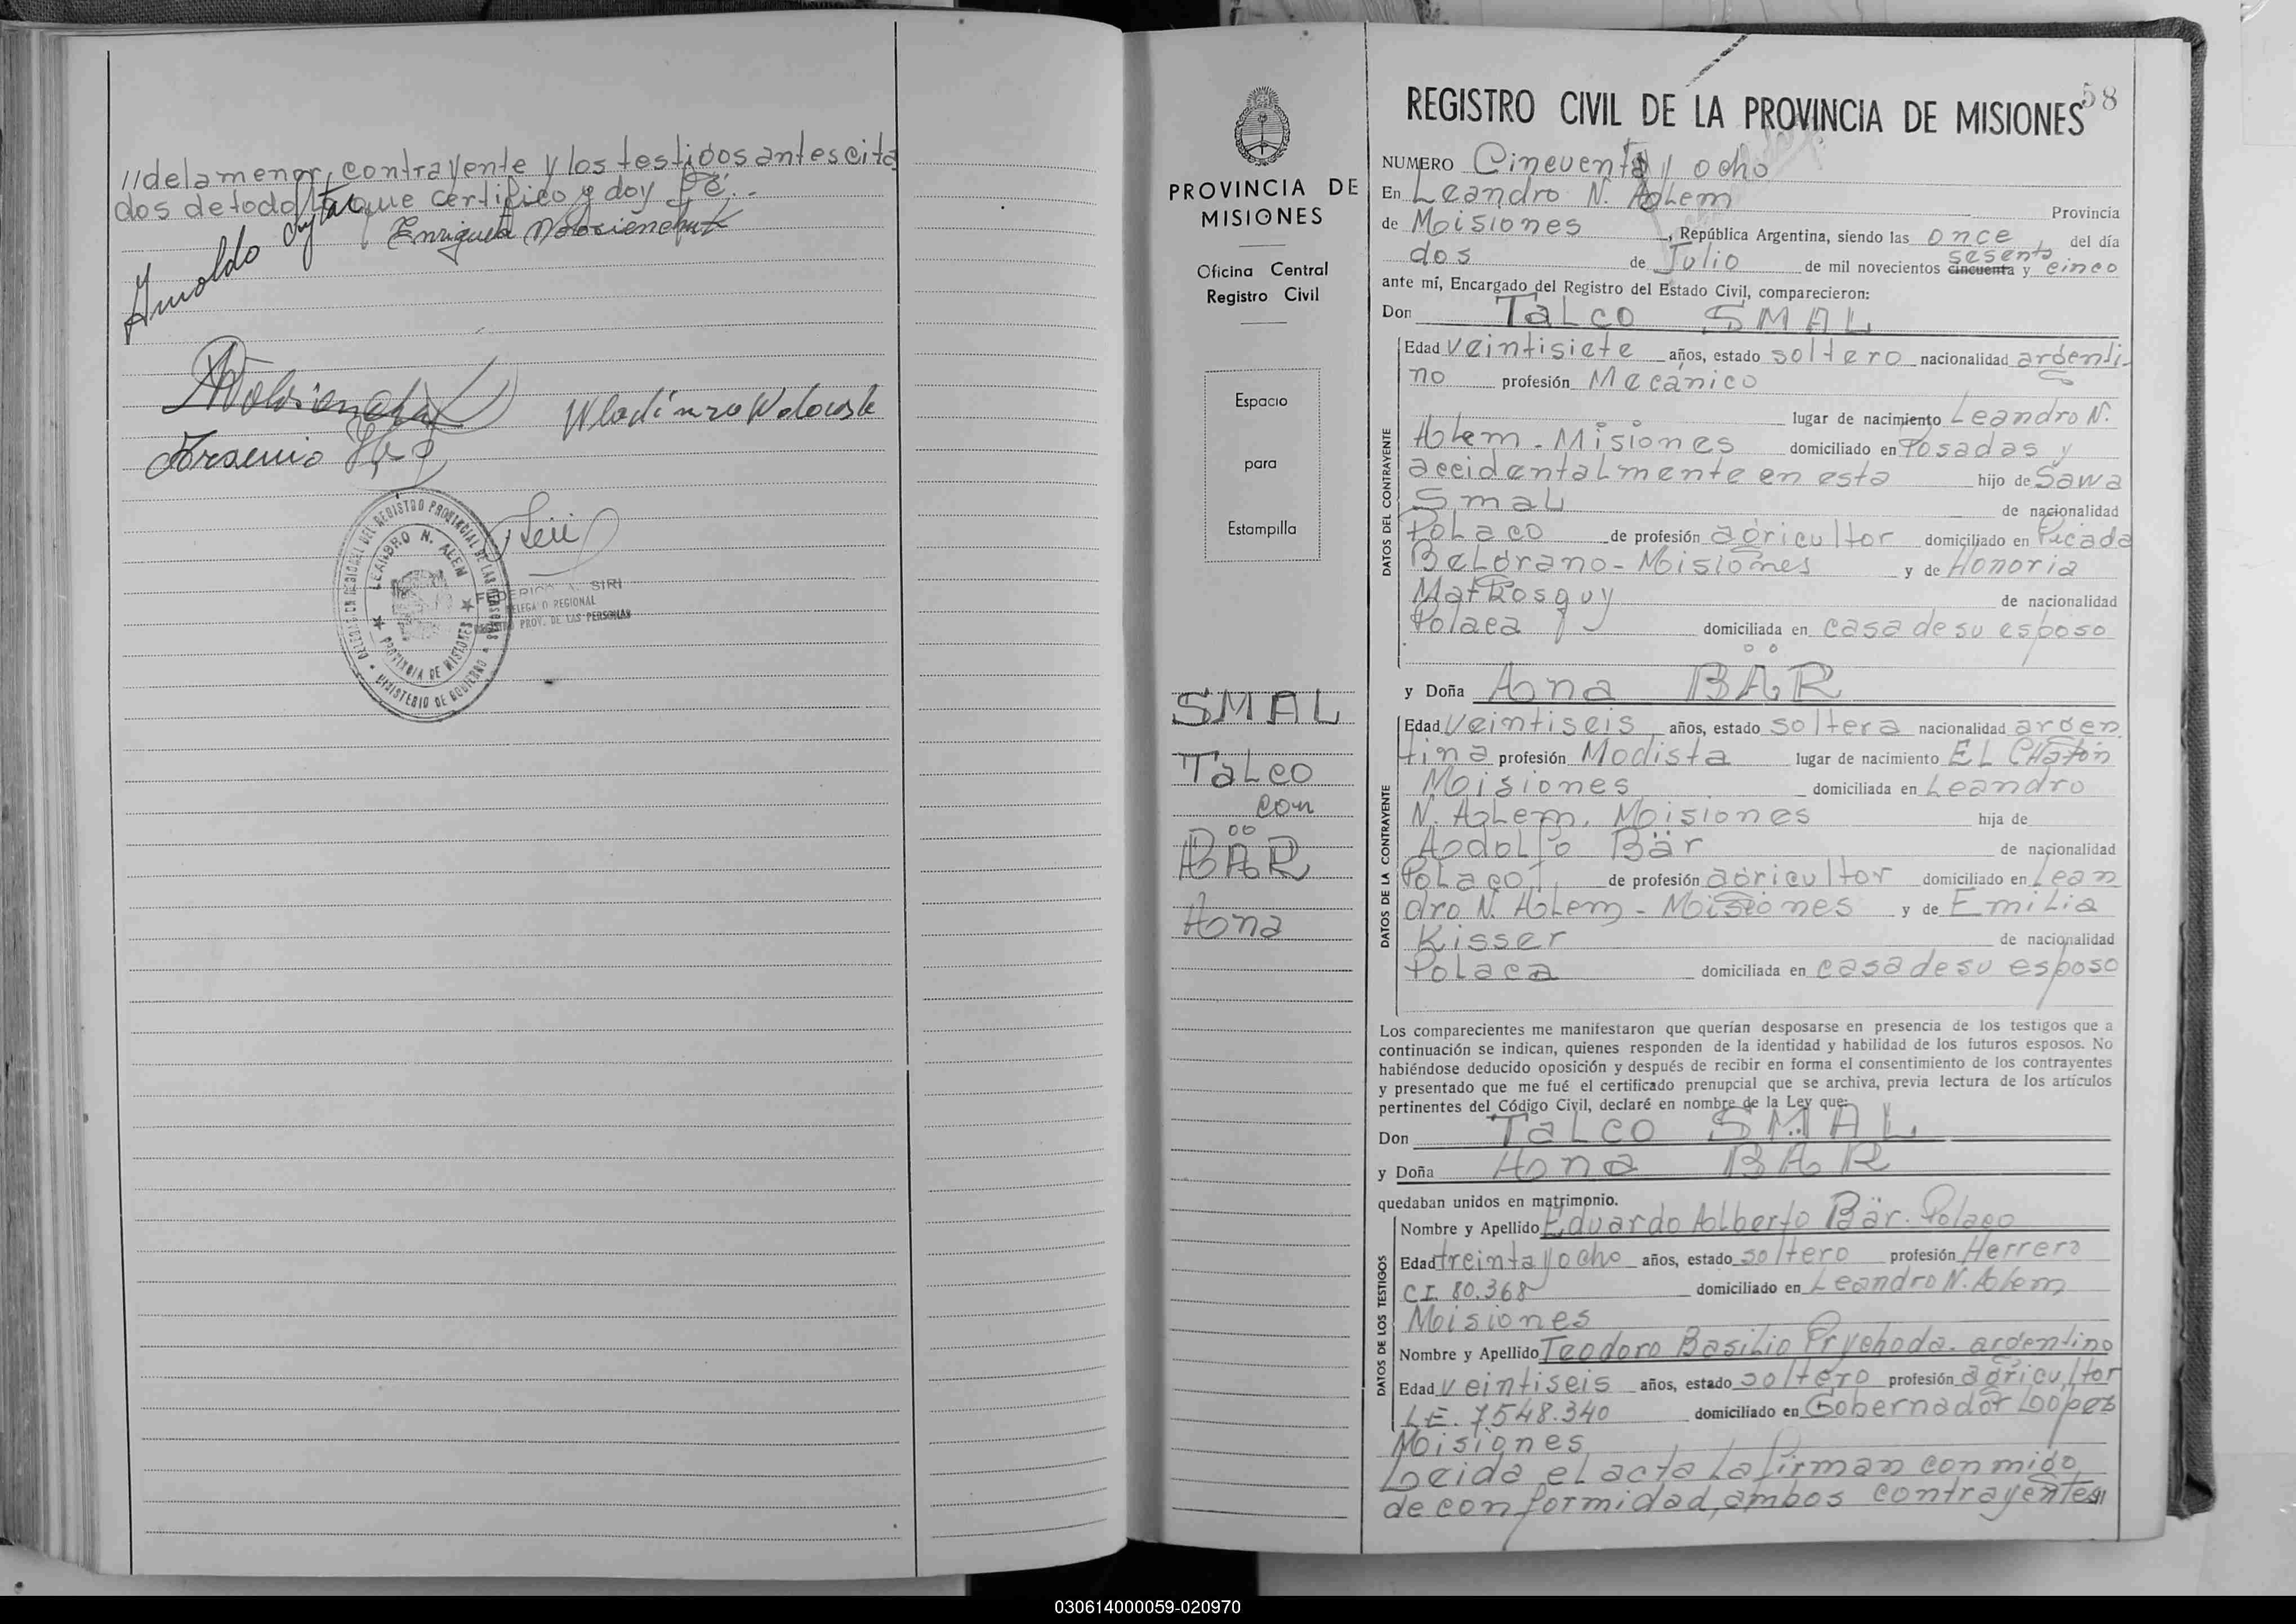 //de la menor, contrayente y los testigos antes cita
dos de todo lo que certifico y doy Fé.-
Arnoldo
Enriqueta Wolosienchuk
Arsenio
DELEGACION REGIONAL DEL REGISTRO PROVINCIAL DE LAS PERSONAS
LEANDRO N. ALEM
PROVINCIA DE MISIONES
MINISTERIO DE GOBIERNO
FEDERICO A. SIRI
DELEGADO REGIONAL
REGISTRO PROV. DE LAS PERSONAS
PROVINCIA DE
MISIONES
Oficina Central
Registro Civil
Espacio
para
Estampilla
SMAL
Talco
con
BÄR
Ana
58
REGISTRO CIVIL DE LA PROVINCIA DE MISIONES
NUMERO Cincuenta y ocho
En Leandro N. Alem Provincia
de Misiones, República Argentina, siendo las once del día
dos de Julio de mil novecientos cincuenta sesenta y cinco
ante mí, Encargado del Registro del Estado Civil, comparecieron:
Don Talco SMAL
DATOS DEL CONTRAYENTE
Edad veintisiete años, estado soltero nacionalidad argenti-
no profesión Mecánico
lugar de nacimiento Leandro N.
Alem - Misiones domiciliado en Posadas y
accidentalmente en esta hijo de Sawa
Smal de nacionalidad
Polaco de profesión agricultor domiciliado en Picada
Belgrano - Misiones y de Honoria
Matkosquy de nacionalidad
Polaca domiciliada en casa de su esposo
y Doña Ana BÄR
DATOS DE LA CONTRAYENTE
Edad veintiseis años, estado soltera nacionalidad argen
tina profesión Modista lugar de nacimiento EL CHatón
Misiones domiciliada en Leandro
N. Alem. Misiones hija de
Adolfo Bär de nacionalidad
Polaco de profesión agricultor domiciliado en Lean
dro N. Alem - Misiones y de Emilia
Kisser de nacionalidad
Polaca domiciliada en casa de su esposo
Los comparecientes me manifestaron que querían desposarse en presencia de los testigos que a
continuación se indican, quienes responden de la identidad y habilidad de los futuros esposos. No
habiéndose deducido oposición y después de recibir en forma el consentimiento de los contrayentes
y presentado que me fué el certificado prenupcial que se archiva, previa lectura de los artículos
pertinentes del Código Civil, declaré en nombre de la Ley que:
Don Talco SMAL
y Doña Ana BAR
quedaban unidos en matrimonio.
DATOS DE LOS TESTIGOS
Nombre y Apellido Eduardo Alberto Bär. Polaco
Edad treinta y ocho años, estado soltero profesión Herrero
C.I. 80.368 domiciliado en Leandro N. Alem
Misiones
Nombre y Apellido Teodoro Basilio Prychoda. argentino
Edad veintiseis años, estado soltero profesión agricultor
L.E. 7548.340 domiciliado en Gobernador Lopez
Misiones
Leida el acta la firman conmigo
de conformidad, ambos contrayentes//
030614000059-020970